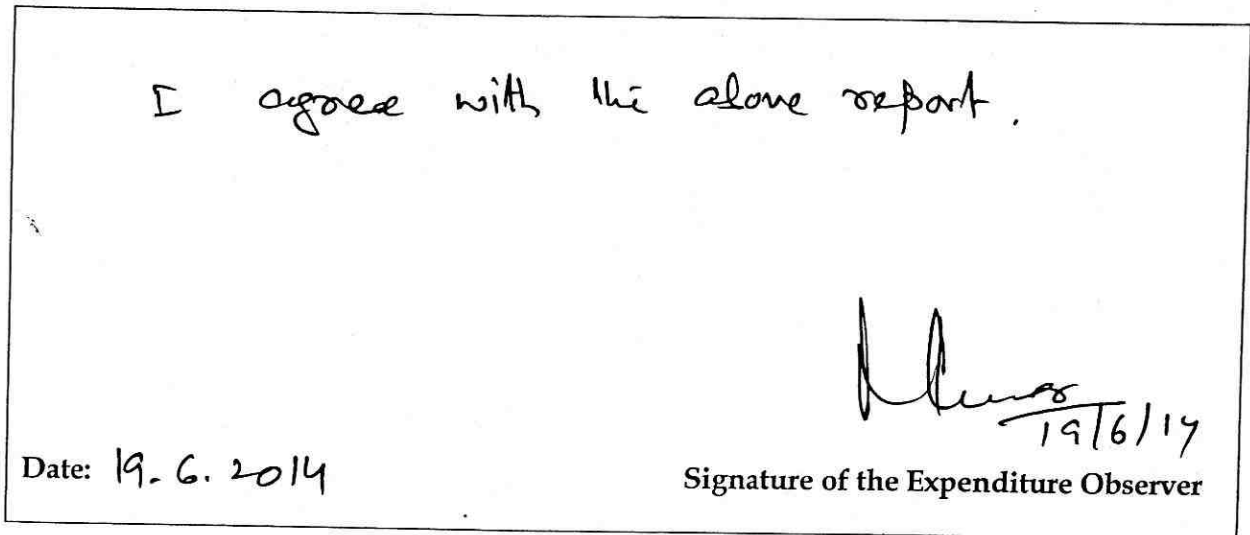 I agree with the above report.
19/6/14
Date: 19.6.2014
Signature of the Expenditure Observer